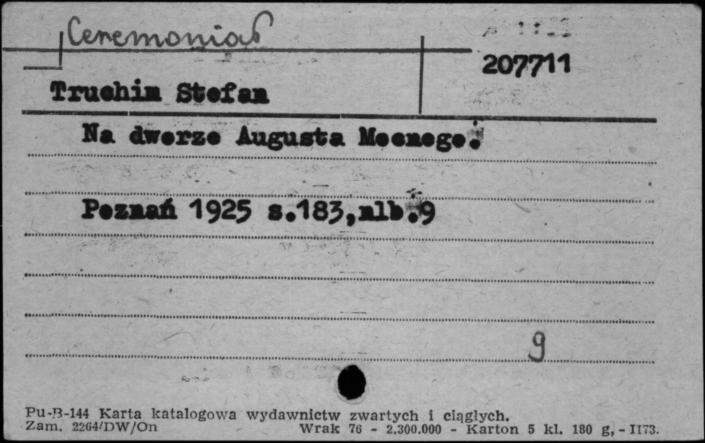 Ceremoniał
207711
Truchim Stefan
Na dworze Augusta Mocnego.
Poznań 1925 s.183,nlb.9
9
Pu-B-144 Karta katalogowa wydawnictw zwartych i ciągłych.
Zam. 2264/DW/On Wrak 76 - 2.300.000 - Karton 5 kl. 180 g, - II73.